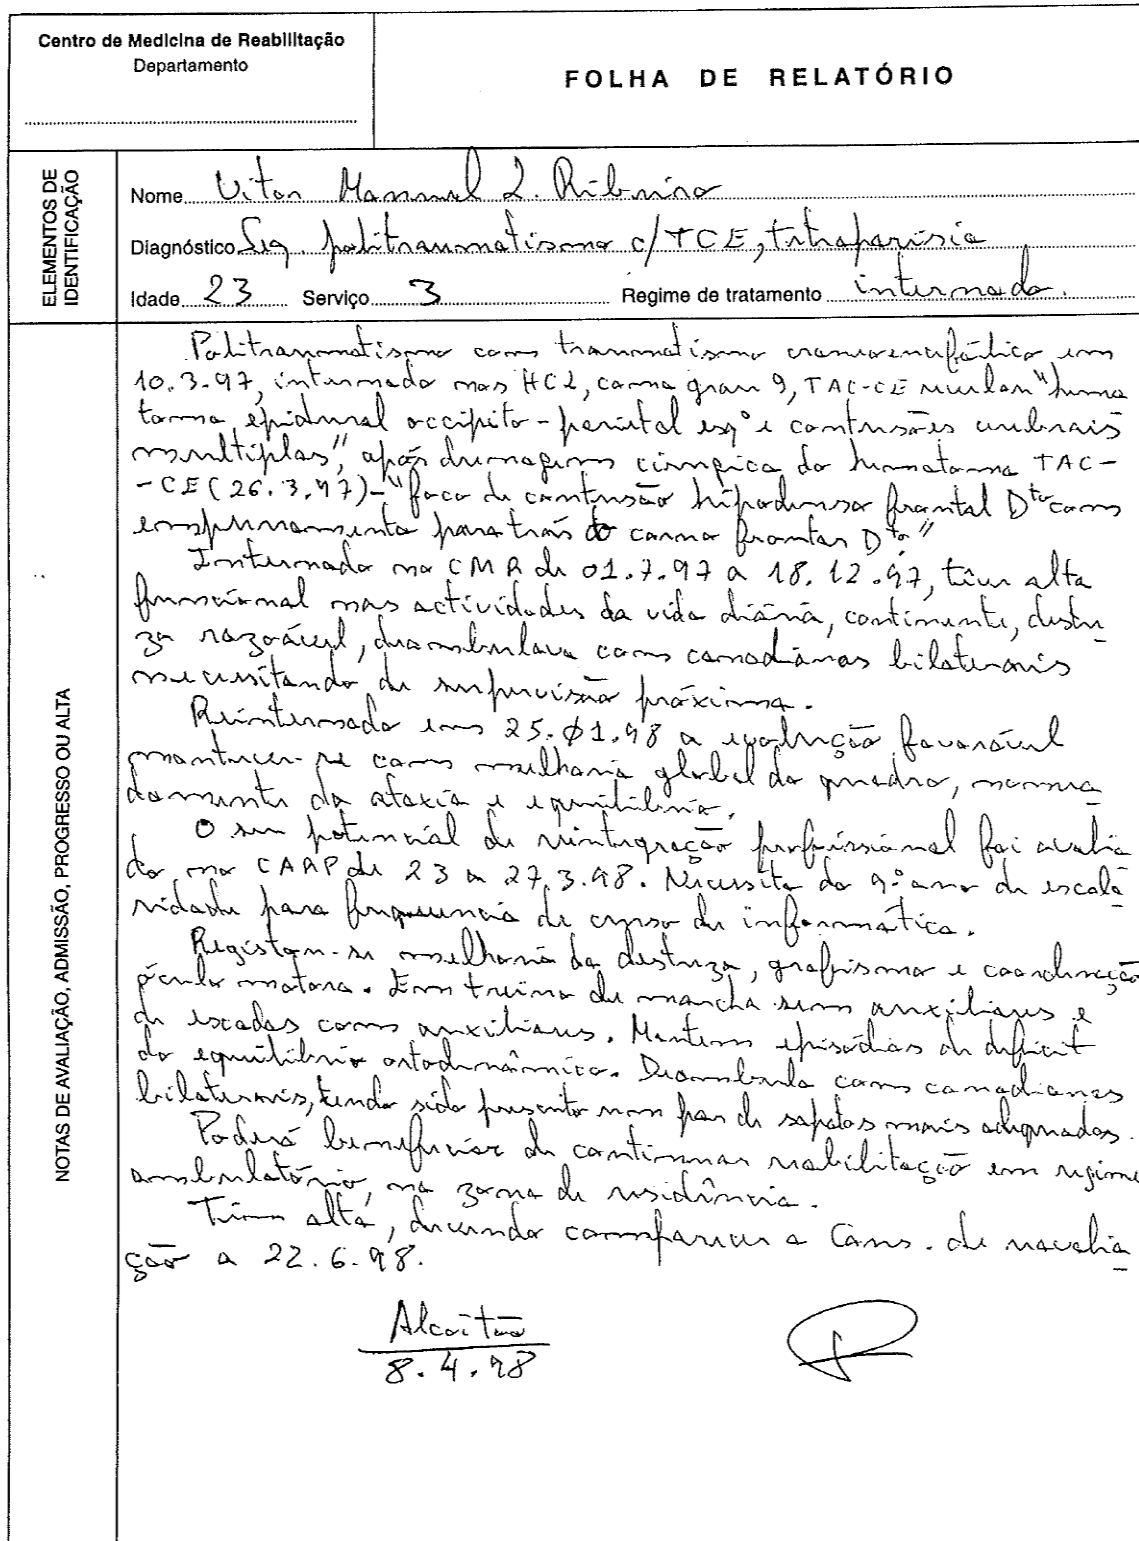 Centro de Medicina de Reabilitação
Departamento
FOLHA DE RELATÓRIO
ELEMENTOS DE
IDENTIFICAÇÃO
Nome Vitor Manuel L. Ribeiro
Diagnóstico Seq. politraumatismo c/ TCE, tetraparésia
Idade 23 Serviço 3 Regime de tratamento internado.
NOTAS DE AVALIAÇÃO, ADMISSÃO, PROGRESSO OU ALTA
Politraumatismo com traumatismo cranioencefálico em
10.3.97, internado nos HCL, coma grau 9, TAC-CE revelou "hema
toma epidural occipito-parietal esqº e contusões cerebrais
multiplas", após drenagem cirúrgica do hematoma TAC-
-CE (26.3.97) - "foco de contusão hipodenso frontal Dto com
empurramento para trás do corno frontal Dto."
Internado no CMR de 01.7.97 a 18.12.97, teve alta
funcional nas actividades da vida diária, continente, destre
za razoável, deambulava com canadianas bilaterais
necessitando de supervisão próxima.
Reinternado em 25.01.98 a evolução favorável
manteve-se com melhoria global do quadro, nomea
damente da ataxia e equilíbrio.
O seu potencial de reintegração profissional foi avalia
do no CARP de 23 a 27.3.98. Necessita do 9º ano de escola
ridade para frequencia de curso de informática.
Registam-se melhoria da destreza, grafismo e coordenação
óculo motora. Em treino de marcha sem auxiliares e
de escadas com auxiliares. Mantem episódios de deficit
do equilíbrio ortodinâmico. Deambula com canadianas
bilaterais, tendo sido presente num par de sapatos mais adequados.
Poderá beneficiar de continuar reabilitação em regime
ambulatório, na zona de residência.
Tem alta, devendo comparecer a Cons. de reavalia
ção a 22.6.98.
Alcoitão
8.4.98